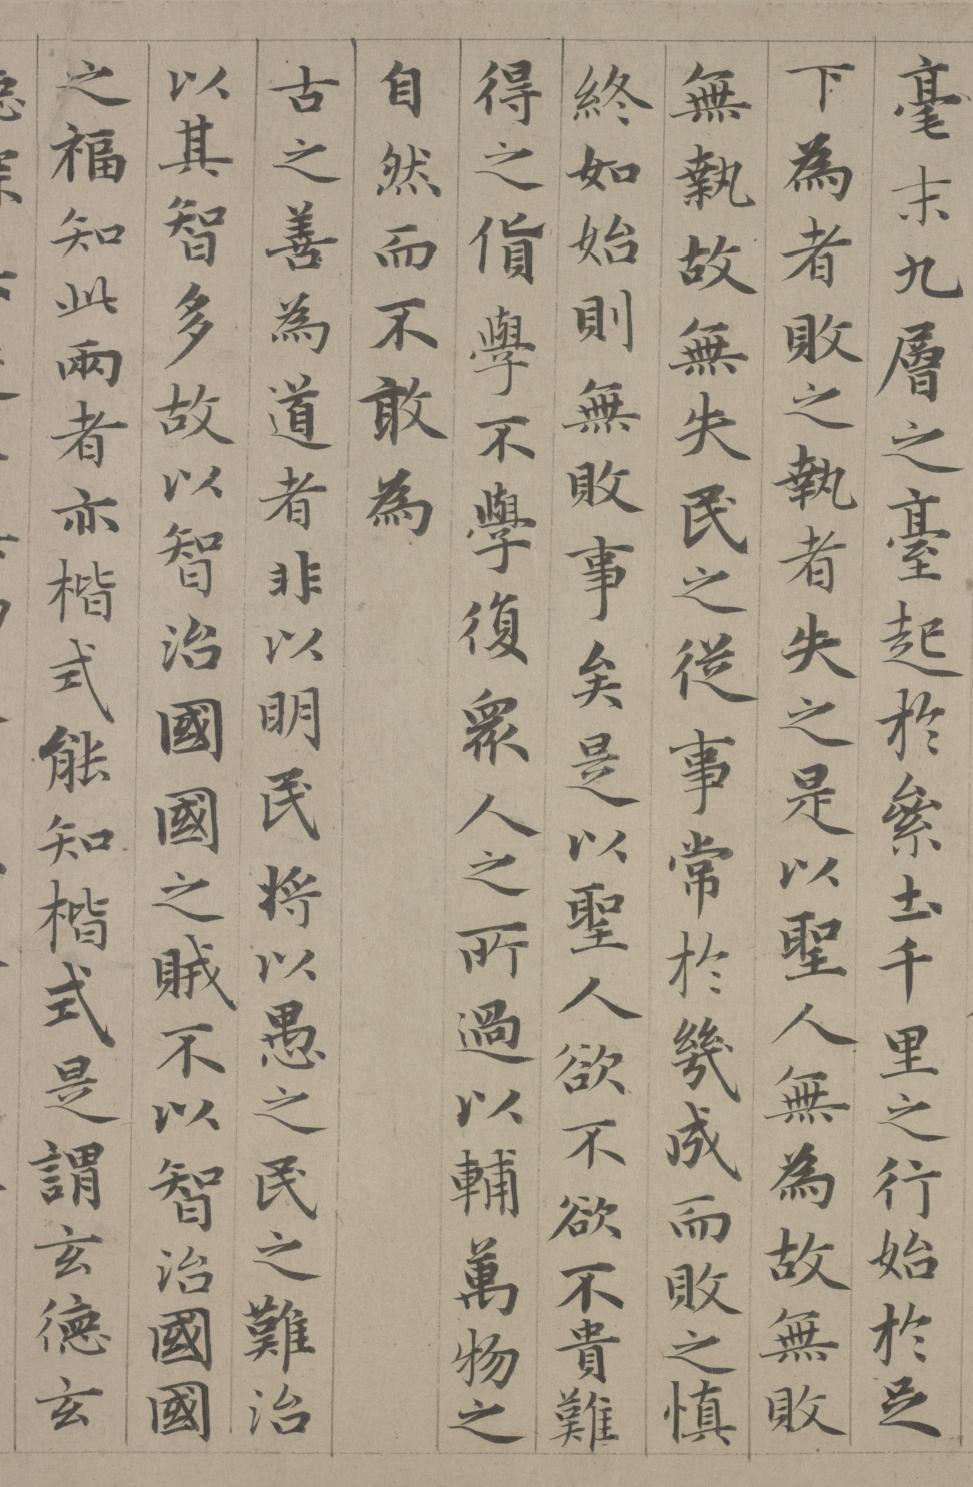 毫末九層之臺起於絫土千里之行始於足
下為者敗之執者失之是以聖人無為故無敗
無執故無失民之從事常於幾成而敗之慎
終如始則無敗事矣是以聖人欲不欲不貴難
得之貨學不學復衆人之所過以輔萬物之
自然而不敢為
古之善為道者非以明民将以愚之民之難治
以其智多故以智治國國之賊不以智治國國
之福知此兩者亦楷式能知楷式是謂玄德玄